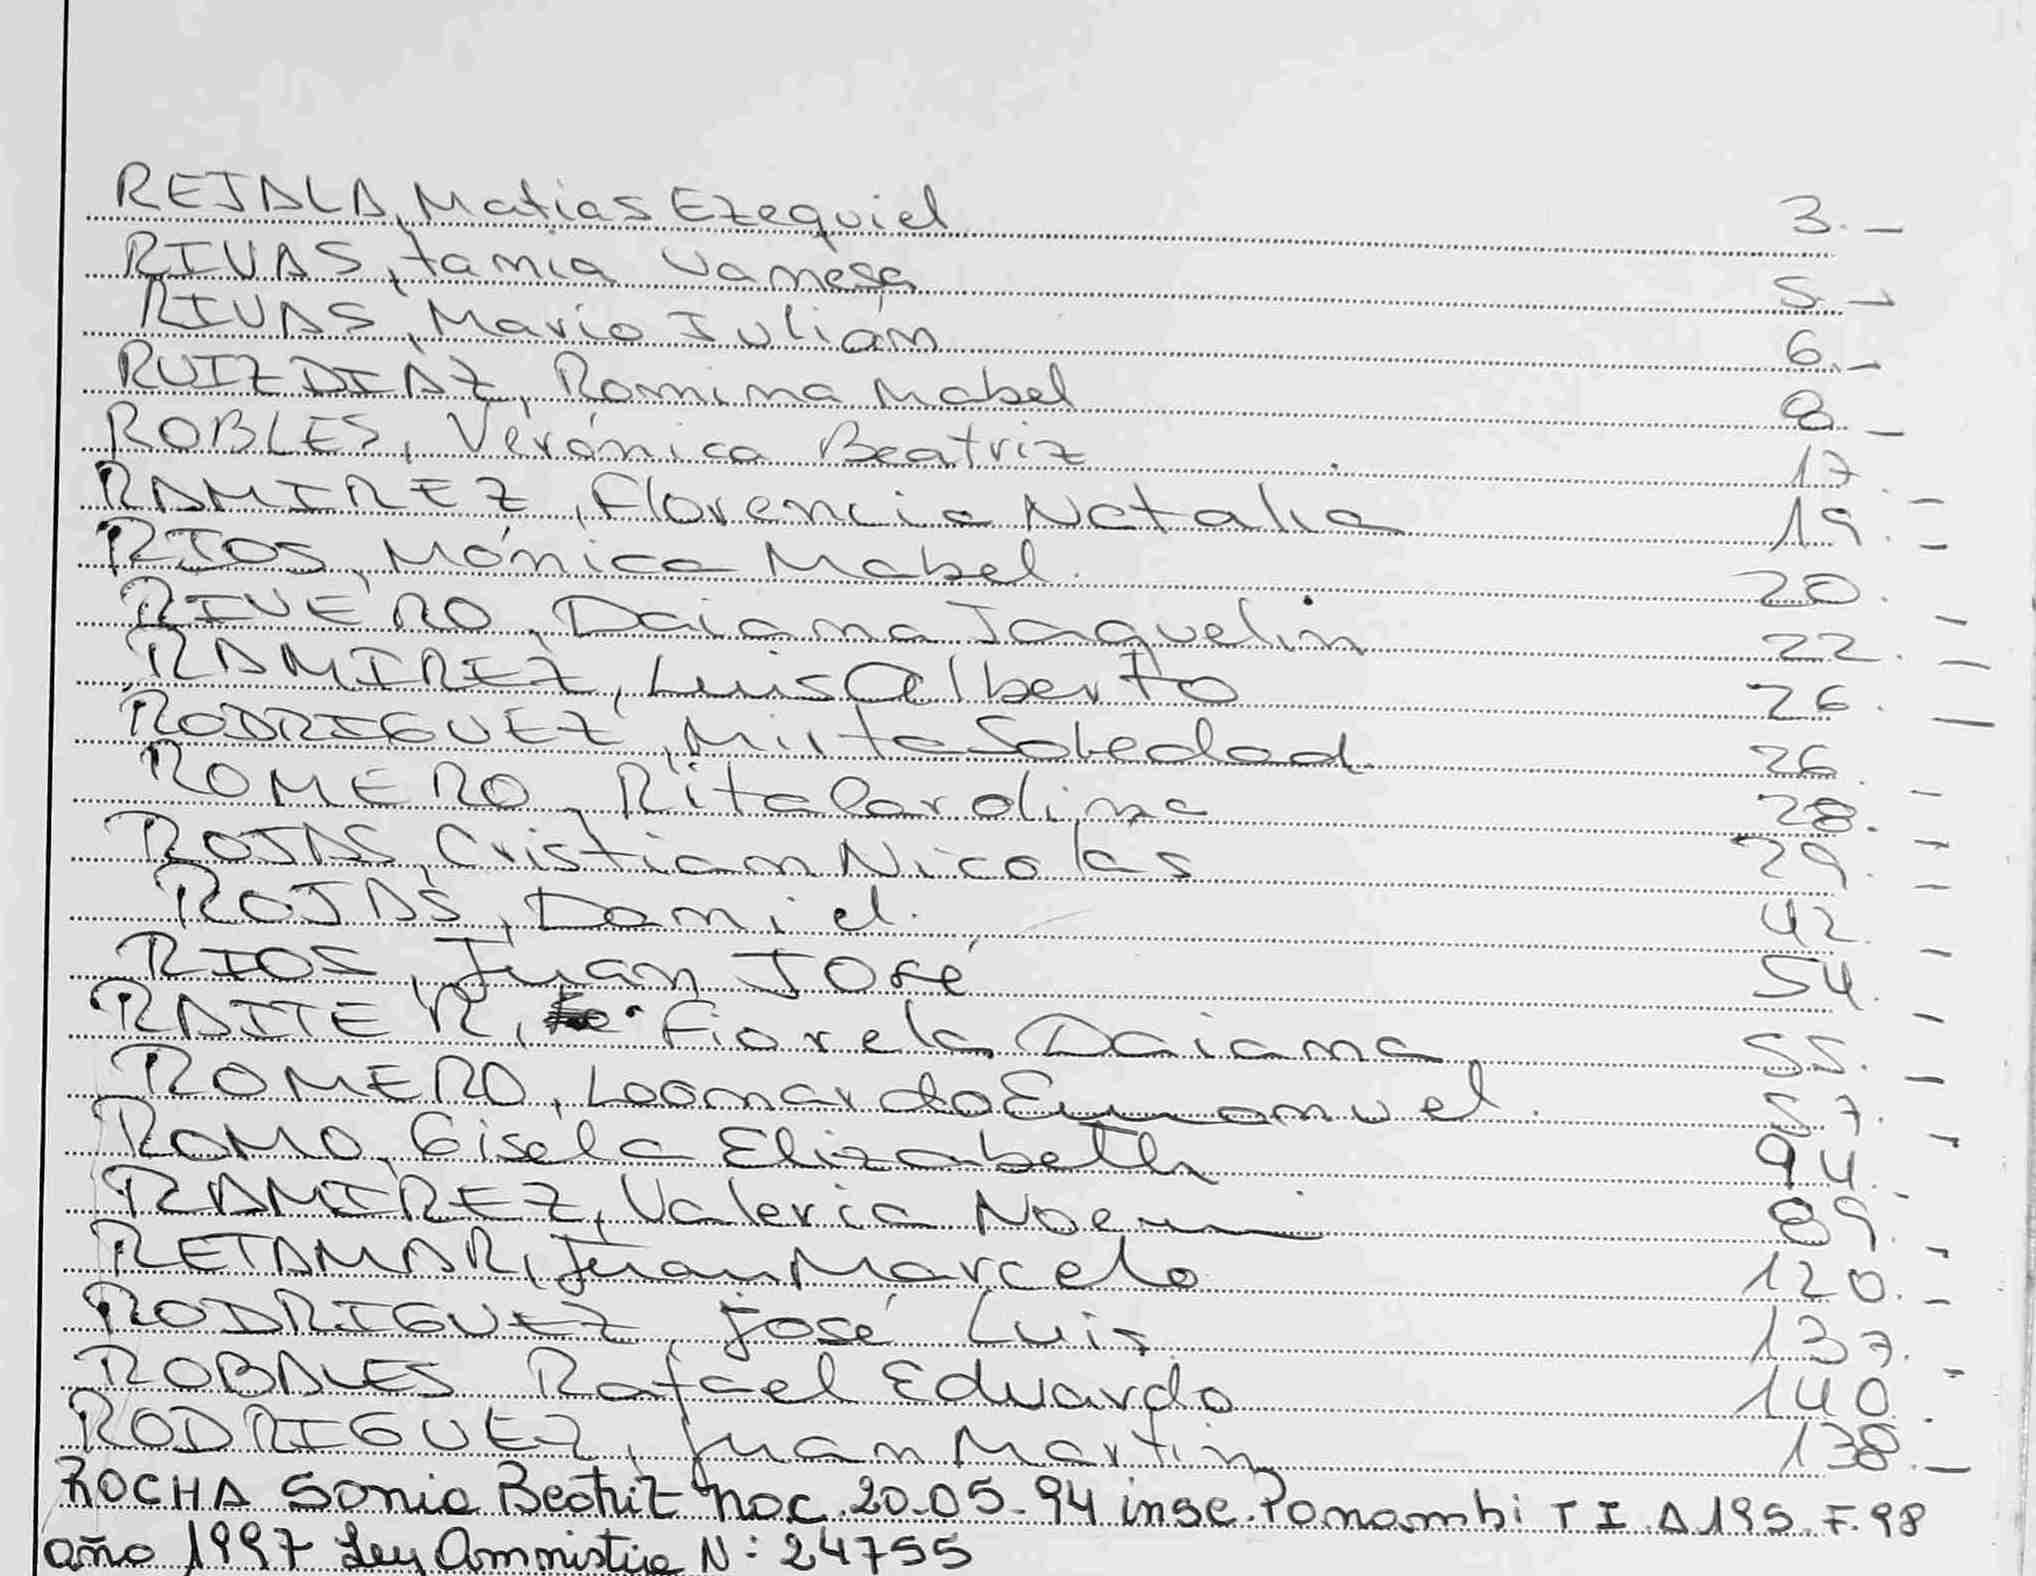 REJALA, Matias Ezequiel 3. —
RIVAS, tania Vanesa 5. —
RIVAS, Mario Julián 6. —
RUIZDIAZ, Romina Mabel 8. —
ROBLES, Verónica Beatriz 17. —
RAMIREZ, Florencia Natalia 19. —
RIOS, Mónica Mabel. 20. —
RIVERO, Daiana Jaquelin 22. —
RAMIREZ, Luis Alberto 26. —
RODRIGUEZ, Mirta Soledad. 26. —
ROMERO, Rita Carolina 28. —
ROJAS, Cristian Nicolas 29. —
ROJAS, Daniel. 42. —
RIOS, Juan José 54. —
RAITER, Fiorela Daiana 55. —
ROMERO, Leonardo Emanuel. 57. —
ROMO, Gisela Elizabeth 94. -
RAMIREZ, Valeria Noemi 89. -
RETAMAR, Juan Marcelo 120. -
RODRIGUEZ, José Luis 137. -
ROBALES Rafael Eduardo 140. -
RODRIGUEZ, Juan Martin 138. —
ROCHA Sonia Beatriz nac. 20.05.94 insc. Panambi T I A 195. F. 98
año 1997 Ley Amnistia N: 24755